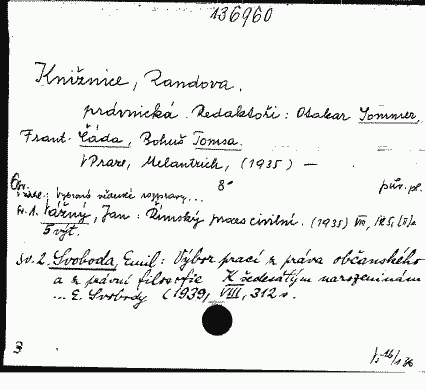 136960
Knižnice, Randova.
právnická. Redaktoři: Otakar Sommer,
Frant. Čáda, Bohuš Tomsa.
V Praze, Melantrich, (1935) —
8° pův. pl.
Vybrané vědecké rozpravy...
Sv. 1. Vážný, Jan: Římský proces civilní. (1935) VIII,
Sv. 2. Svoboda, Emil: Výbor prací z práva občanského
a z právní filosofie K šedesátým narozeninám
... E. Svobody (1939, VIII, 312 s.
3